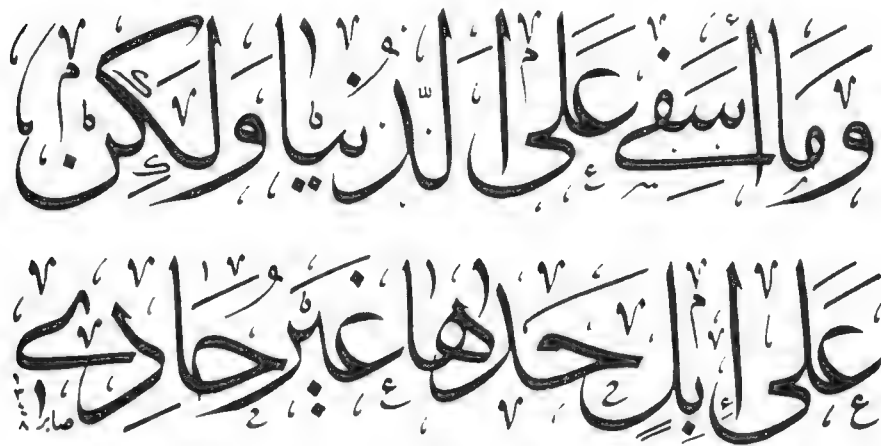 وَمَا أَسَفِي عَلَى الدُّنْيَا وَلَكِنْ
عَلَى إِبِلٍ حَدَاهَا غَيْرُ حَادِي
صابر